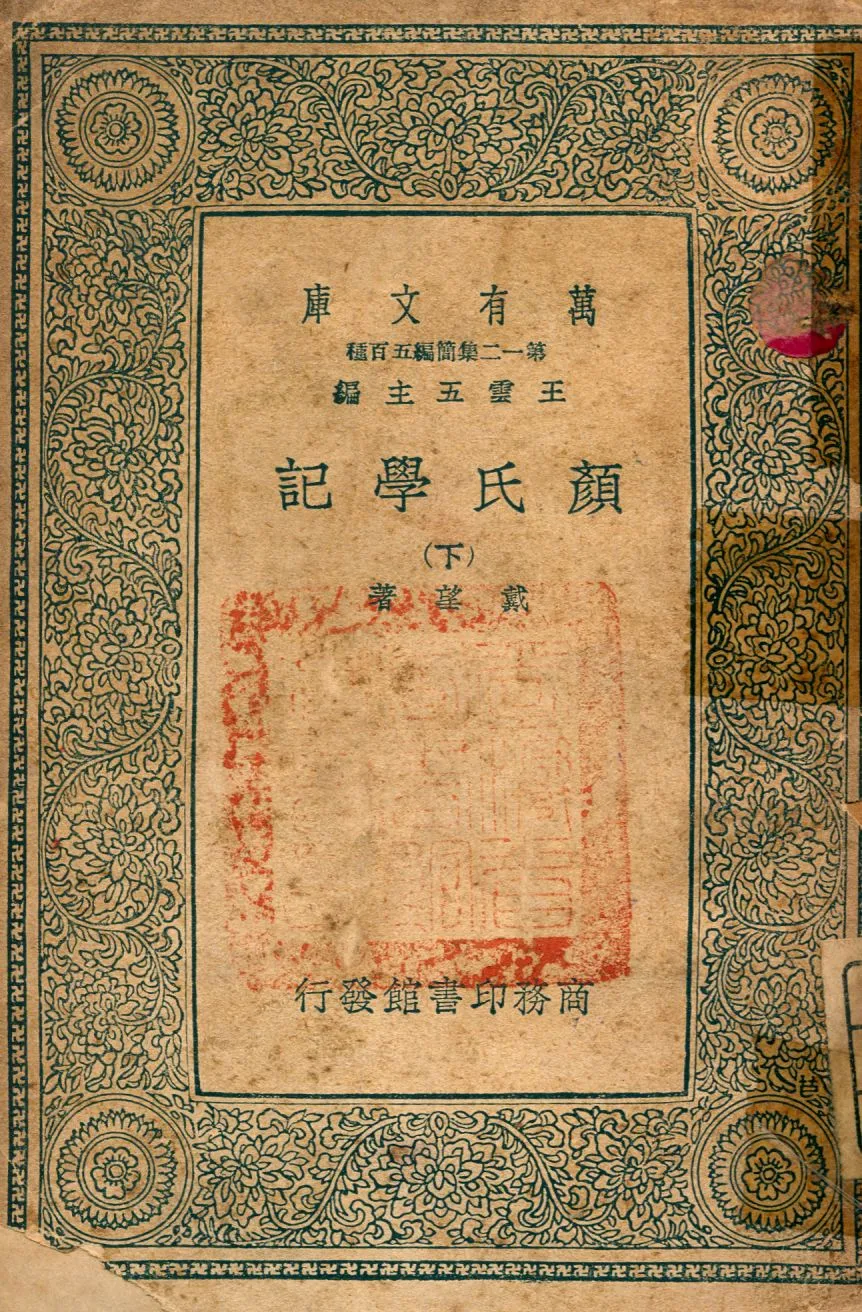 萬有文庫
第一二集簡編五百種
王雲五主編
顏氏學記
(下)
戴望著
商務印書館發行